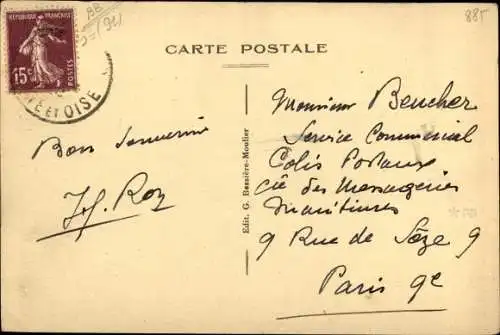 REPUBLIQUE FRANÇAISE
15c
POSTES
ET OISE
BB
(91)
885
CARTE POSTALE
Bon Souvenir
Monsieur Beucher
Service Commercial
Colis Postaux
Cie des Messageries
Maritimes
9 Rue de Sèze 9
Paris 9e
Edit. G. Bessière-Moulier